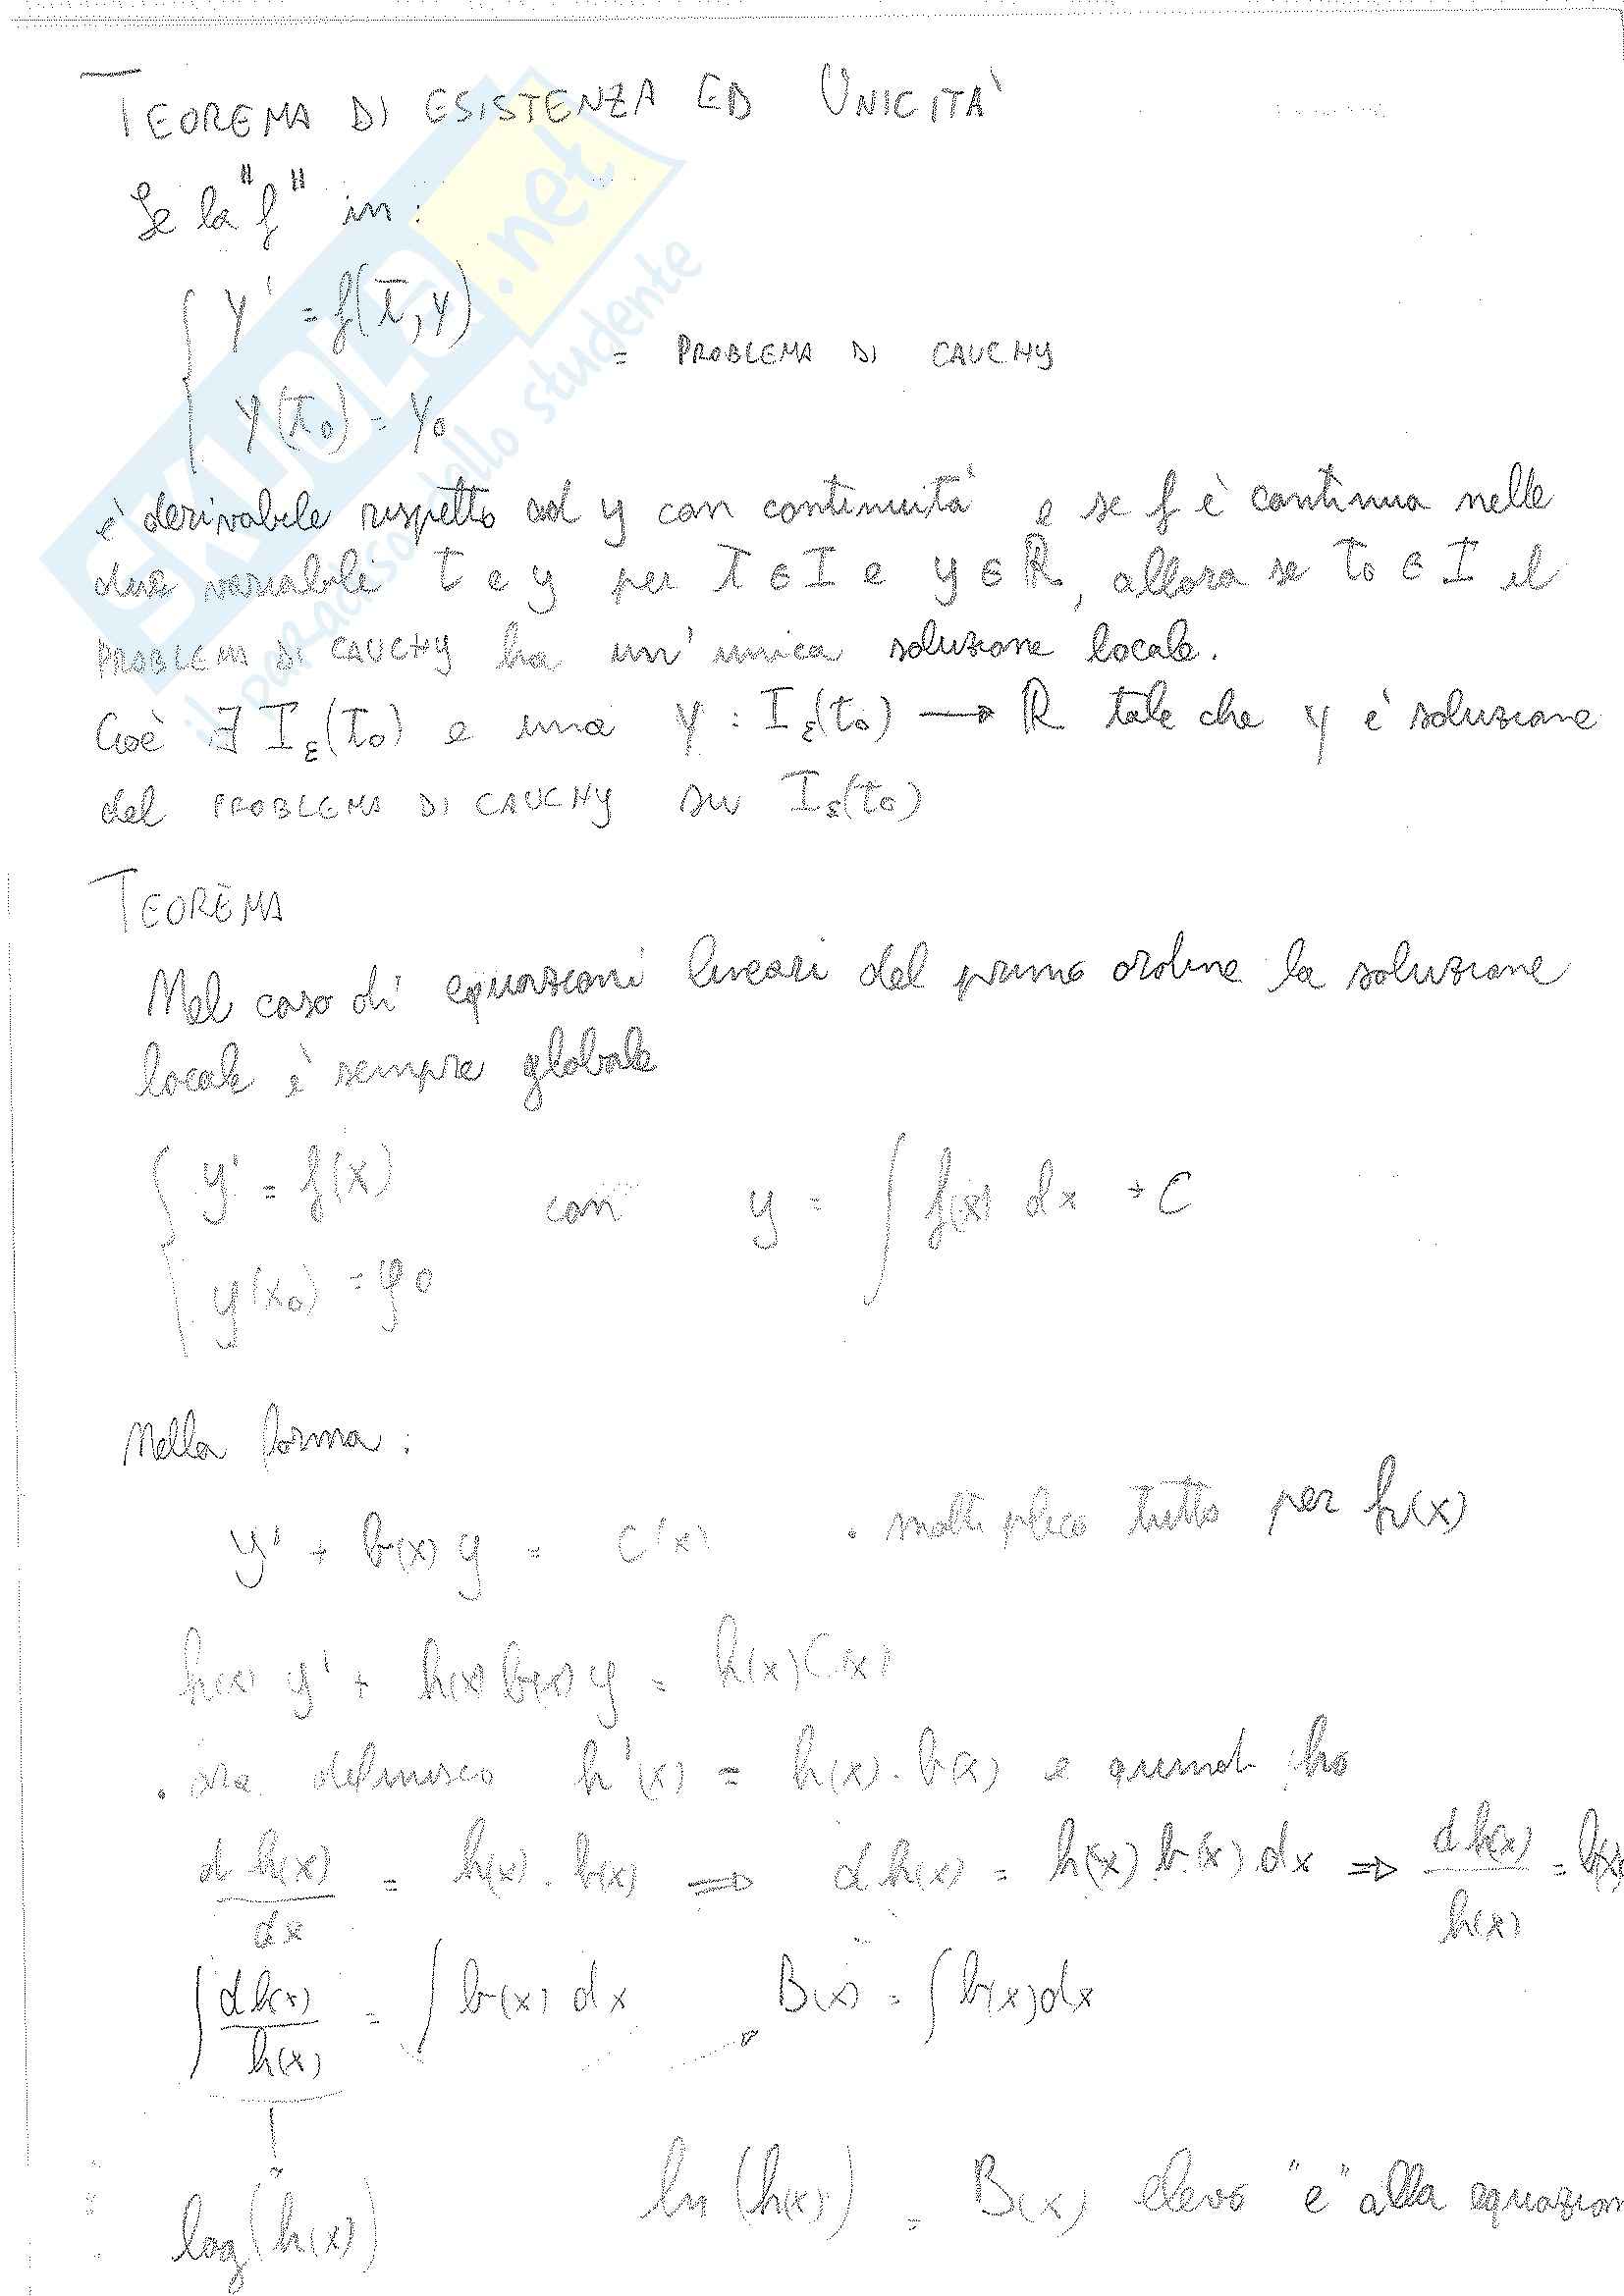 TEOREMA DI ESISTENZA ED UNICITA'
Se la "f" in:
y' = f(t,y)
= PROBLEMA DI CAUCHY
y(t₀) = y₀
è derivabile rispetto ad y con continuità e se f è continua nelle
due variabili t e y per t ∈ I e y ∈ ℝ, allora se t₀ ∈ I il
PROBLEMA DI CAUCHY ha un' unica soluzione locale.
Cioè ∃ I_ε(t₀) e una y : I_ε(t₀) → ℝ tale che y è soluzione
del PROBLEMA DI CAUCHY su I_ε(t₀)
TEOREMA
Nel caso di equazioni lineari del primo ordine la soluzione
locale è sempre globale
y' = f(x) con y = ∫ f(x) dx + C
y(x₀) = y₀
Nella forma:
y' + b(x) y = c(x) . moltiplico tutto per h(x)
h(x) y' + h(x) b(x) y = h(x) c(x)
. ora definisco h'(x) = h(x) . b(x) e quindi ho
d h(x) / dx = h(x) . b(x) ⇒ d h(x) = h(x) b(x) dx ⇒ d h(x) / h(x) = b(x)
∫ d h(x) / h(x) = ∫ b(x) dx → B(x) = ∫ b(x) dx
log(h(x)) ln(h(x)) = B(x) elevo "e" alla equazion
SKUOLA.net
il paradiso dello studente